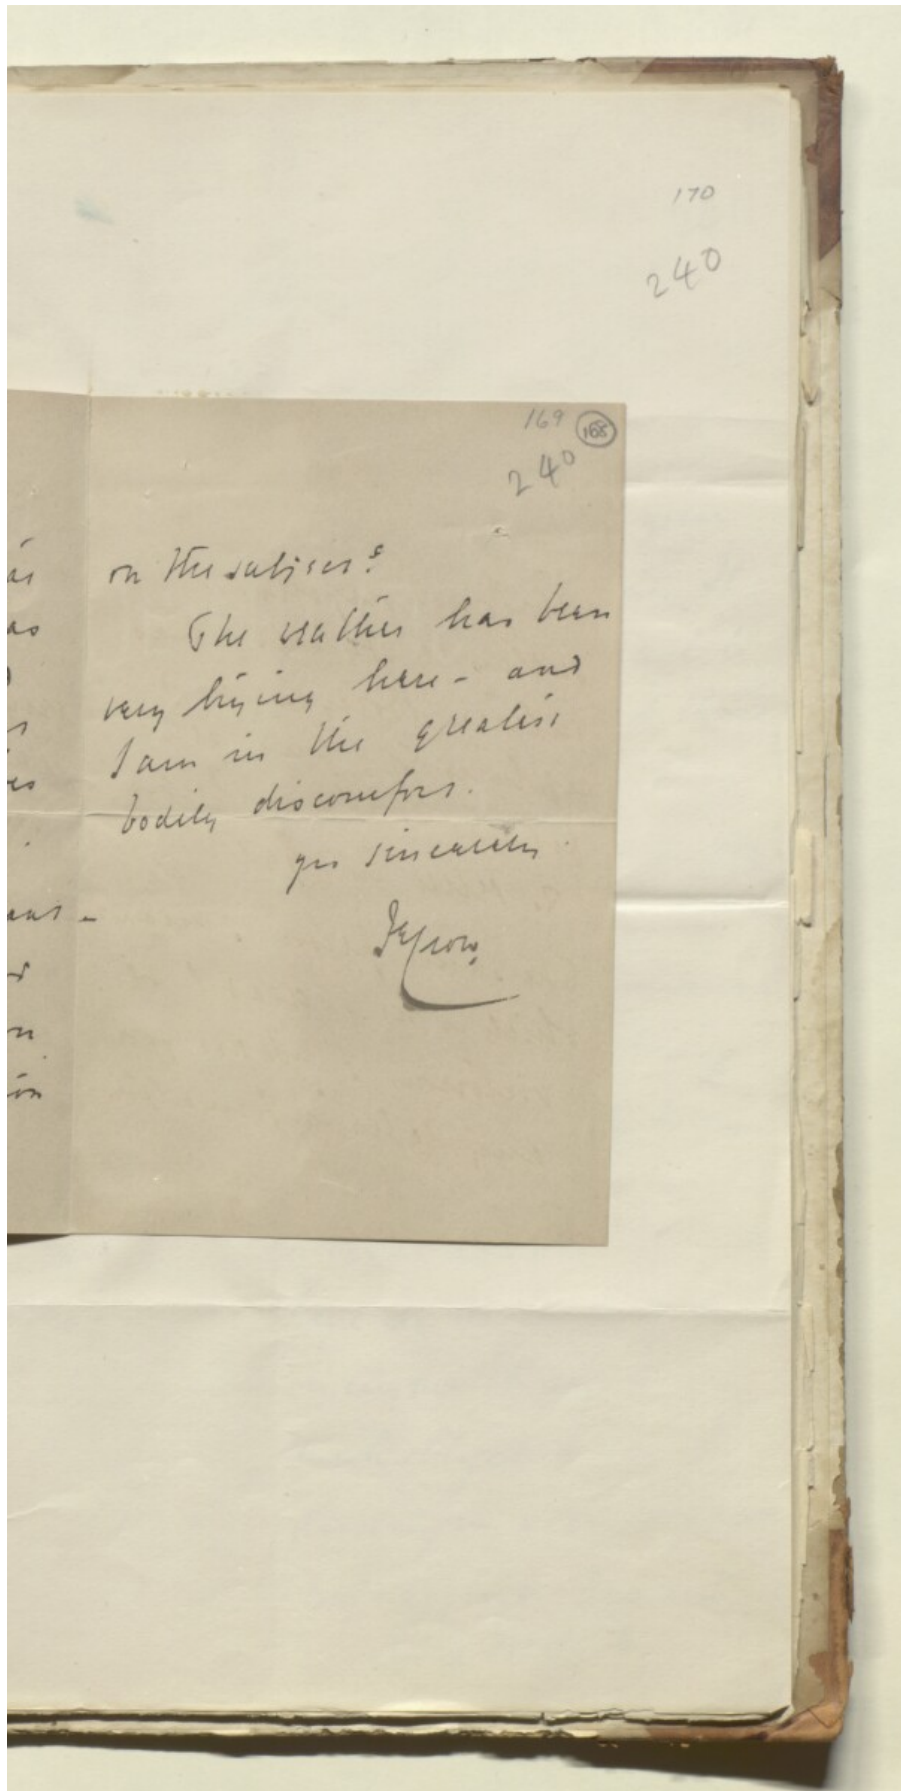 170
240
169 168
240
on the subject?
The weather has been
very trying here - and
I am in the greatest
bodily discomfort.
yrs sincerely
as
es
on